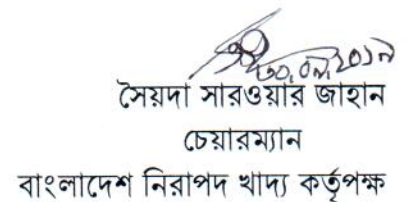 ৩০.০৯.২০১৯
সৈয়দা সারওয়ার জাহান
চেয়ারম্যান
বাংলাদেশ নিরাপদ খাদ্য কর্তৃপক্ষ